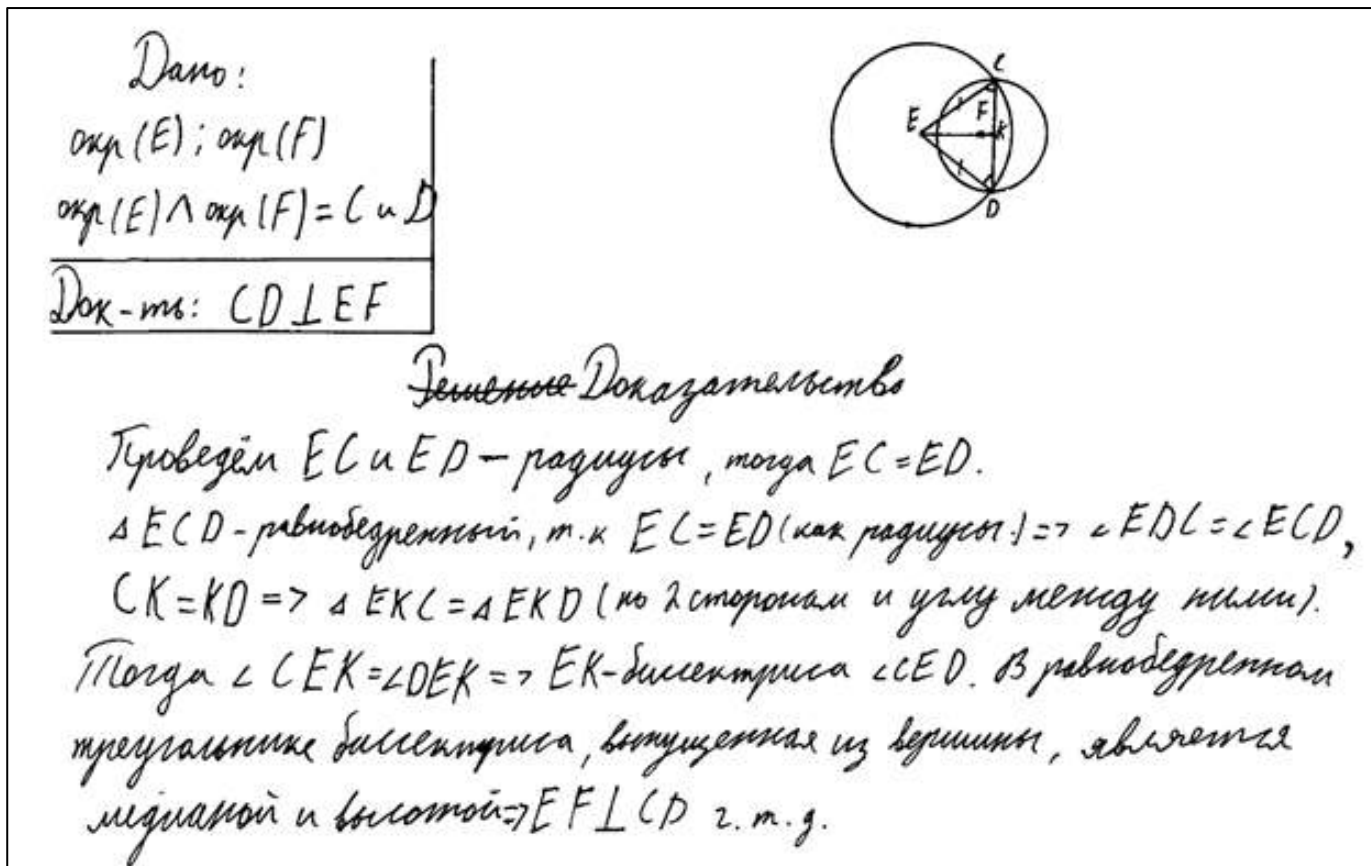 Дано:
окр(E); окр(F)
окр(E) ∧ окр(F) = C и D
Док-ть: CD ⊥ EF
C
E
F
K
D
Решение Доказательство
Проведём EC и ED – радиусы, тогда EC = ED.
△ ECD - равнобедренный, т.к EC = ED (как радиусы.) => ∠ EDC = ∠ ECD,
CK = KD => △ EKC = △ EKD (по 2 сторонам и углу между ними).
Тогда ∠ CEK = ∠DEK => EK-биссектриса ∠CED. В равнобедренном
треугольнике биссектриса, выпущенная из вершины, является
медианой и высотой => EF ⊥ CD ч.т.д.